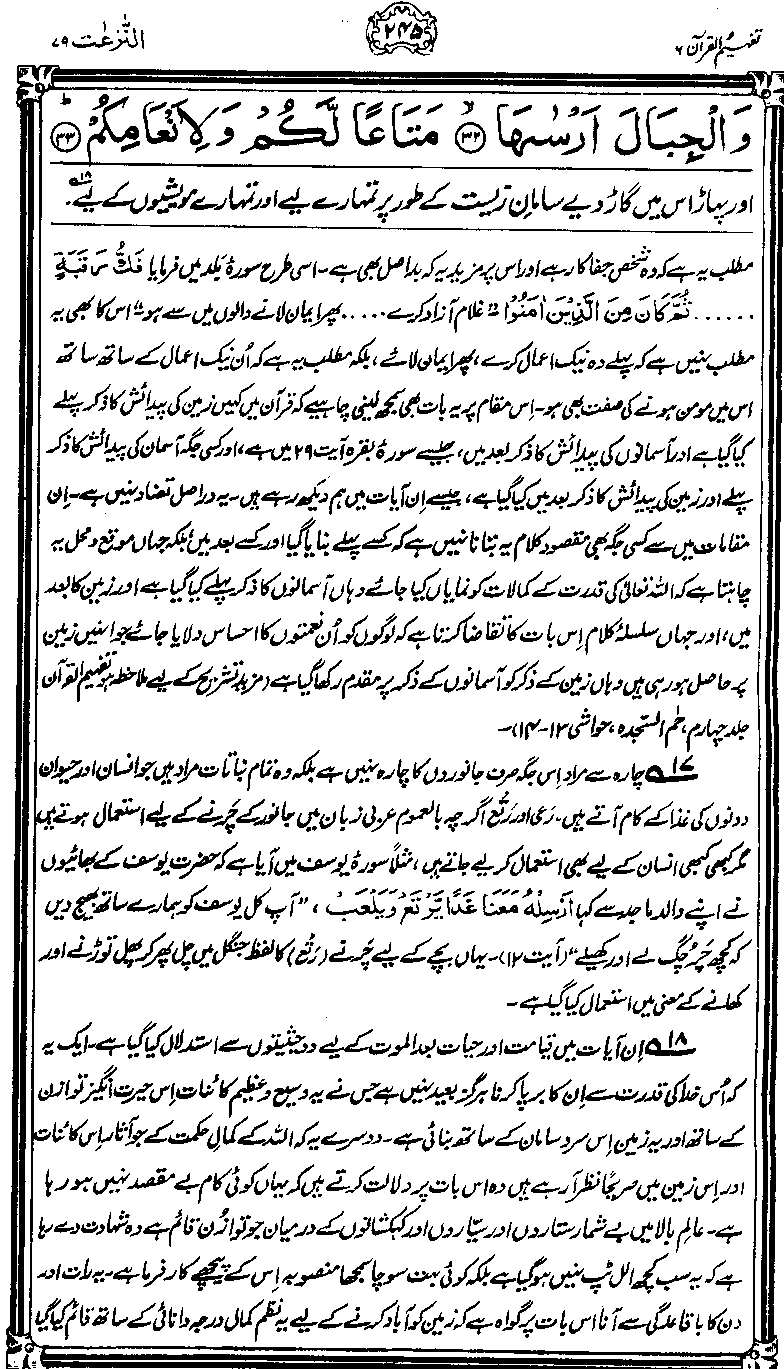 تفہیم القرآن ۶
۲۴۵
النّٰزعٰت ۷۹
وَالْجِبَالَ اَرْسٰىهَا ۙ﴿۳۲﴾ مَتَاعًا لَّكُمْ وَلِاَنْعَامِكُمْ ؕ﴿۳۳﴾
اور پہاڑ اس میں گاڑ دیے سامانِ زیست کے طور پر تمہارے لیے اور تمہارے مویشیوں کے لیے۔۱۸
مطلب یہ ہے کہ وہ شخص جفا کار ہے اور اس پر مزید یہ کہ بد اصل بھی ہے۔ اسی طرح سورۂ بلد میں فرمایا فَكُّ رَقَبَةٍ
...... ثُمَّ كَانَ مِنَ الَّذِيْنَ اٰمَنُوْا "غلام آزاد کرے ..... پھر ایمان لانے والوں میں سے ہو" اس کا بھی یہ
مطلب نہیں ہے کہ پہلے وہ نیک اعمال کرے، پھر ایمان لائے، بلکہ مطلب یہ ہے کہ اُن نیک اعمال کے ساتھ ساتھ
اس میں مومن ہونے کی صفت بھی ہو۔ اِس مقام پر یہ بات بھی سمجھ لینی چاہیے کہ قرآن میں کہیں زمین کی پیدائش کا ذکر پہلے
کیا گیا ہے اور آسمانوں کی پیدائش کا ذکر بعد میں، جیسے سورۂ بقرہ آیت ۲۹ میں ہے، اور کسی جگہ آسمان کی پیدائش کا ذکر
پہلے اور زمین کی پیدائش کا ذکر بعد میں کیا گیا ہے، جیسے اِن آیات میں ہم دیکھ رہے ہیں۔ یہ دراصل تضاد نہیں ہے۔ اِن
مقامات میں سے کسی جگہ بھی مقصودِ کلام یہ بتانا نہیں ہے کہ کسے پہلے بنایا گیا اور کسے بعد میں، بلکہ جہاں موقع و محل یہ
چاہتا ہے کہ اللہ تعالیٰ کی قدرت کے کمالات کو نمایاں کیا جائے وہاں آسمانوں کا ذکر پہلے کیا گیا ہے اور زمین کا بعد
میں، اور جہاں سلسلۂ کلام اِس بات کا تقاضا کرتا ہے کہ لوگوں کو اُن نعمتوں کا احساس دلایا جائے جو انہیں زمین
پر حاصل ہو رہی ہیں وہاں زمین کے ذکر کو آسمانوں کے ذکر پر مقدم رکھا گیا ہے (مزید تشریح کے لیے ملاحظہ ہو تفہیم القرآن
جلد چہارم، حٰم السّجدہ، حواشی ۱۳-۱۴)۔
۱۷ چارہ سے مراد اِس جگہ صرف جانوروں کا چارہ نہیں ہے بلکہ وہ تمام نباتات مراد ہیں جو انسان اور حیوان
دونوں کی غذا کے کام آتے ہیں۔ رَعی اور رَتُع اگرچہ بالعموم عربی زبان میں جانور کے چَرنے کے لیے استعمال ہوتے ہیں
مگر کبھی کبھی انسان کے لیے بھی استعمال کر لیے جاتے ہیں، مثلاً سورۂ یوسف میں آیا ہے کہ حضرت یوسف کے بھائیوں
نے اپنے والد ماجد سے کہا اَرْسِلْهُ مَعَنَا غَدًا يَّرْتَعْ وَيَلْعَبْ، "آپ کل یوسف کو ہمارے ساتھ بھیج دیں
کہ کچھ چَر چُگ لے اور کھیلے" (آیت ۱۲)۔ یہاں بچے کے لیے چَرنے (رَتُع) کا لفظ جنگل میں چل پھر کر پھل توڑنے اور
کھانے کے معنی میں استعمال کیا گیا ہے۔
۱۸ اِن آیات میں قیامت اور حیات بعد الموت کے لیے دو حیثیتوں سے استدلال کیا گیا ہے۔ ایک یہ
کہ اُس خدا کی قدرت سے اِن کا برپا کرنا ہرگز بعید نہیں ہے جس نے یہ وسیع و عظیم کائنات اِس حیرت انگیز توازن
کے ساتھ اور یہ زمین اِس سر و سامان کے ساتھ بنائی ہے۔ دوسرے یہ کہ اللہ کے کمالِ حکمت کے جو آثار اِس کائنات
اور اِس زمین میں صریحاً نظر آ رہے ہیں وہ اس بات پر دلالت کرتے ہیں کہ یہاں کوئی کام بے مقصد نہیں ہو رہا
ہے۔ عالمِ بالا میں بے شمار ستاروں اور سیّاروں اور کہکشانوں کے درمیان جو توازُن قائم ہے وہ شہادت دے رہا
ہے کہ یہ سب کچھ الل ٹپ نہیں ہو گیا ہے بلکہ کوئی بہت سوچا سمجھا منصوبہ اِس کے پیچھے کار فرما ہے۔ یہ رات اور
دن کا باقاعدگی سے آنا اس بات پر گواہ ہے کہ زمین کو آباد کرنے کے لیے یہ نظم کمال درجہ دانائی کے ساتھ قائم کیا گیا